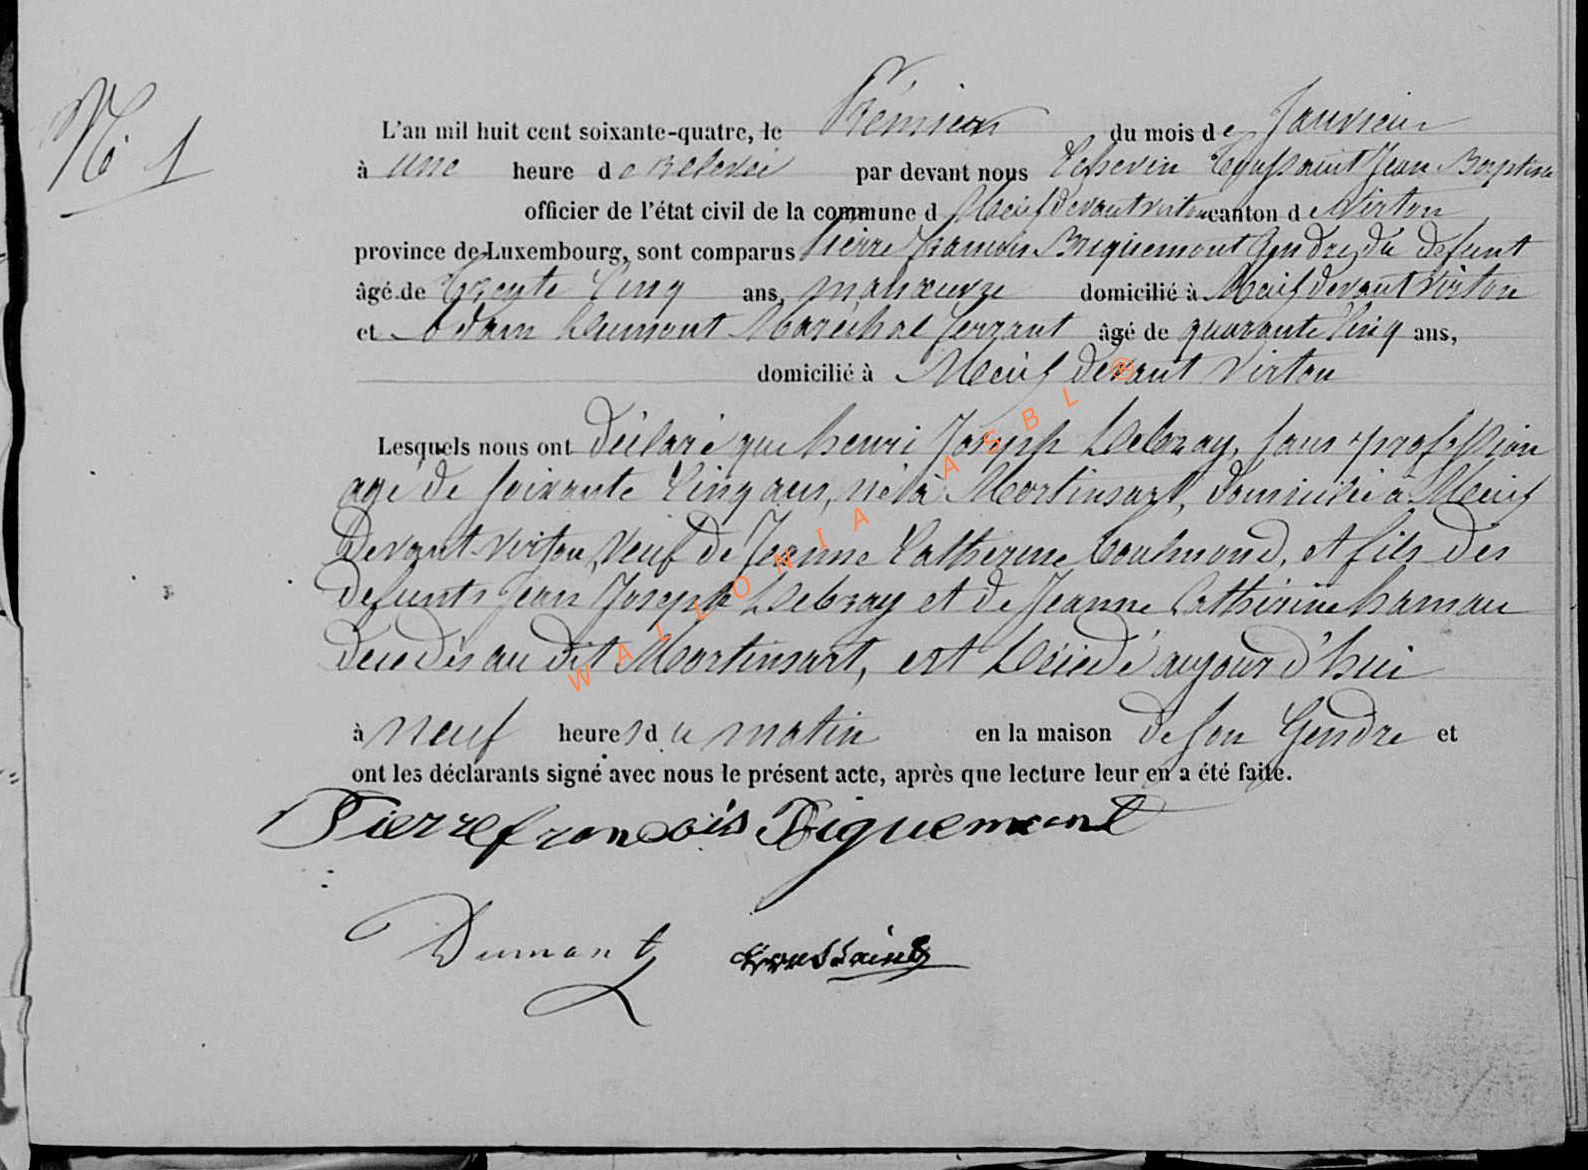 N° 1
L'an mil huit cent soixante-quatre, le Prémier du mois de Janvier
à une heure de Relevée par devant nous Echevin Toussaint Jean Baptiste
officier de l'état civil de la commune d Meix devant virton canton de Virton
province de Luxembourg, sont comparus Pierre François Briquemont Gendre du defunt
âgé de Trente Cinq ans, manœuvre domicilié à Meix devant Virton
et Adam Dumont Maréchal ferrant âgé de quarante cinq ans,
domicilié à Meix devant Virton
Lesquels nous ont déclaré que henri Joseph Debray, sans profession
agé de soixante Cinq ans, né à Mortinsart, domicilié à Meix
Devant virton, veuf de Jeanne Catherine Coulmond, et fils des
defunts Jean Joseph Debray et de Jeanne Catherine
decedés au dit Mortinsart, est décédé aujourd'hui
à neuf heures du matin en la maison de son Gendre et
ont les déclarants signé avec nous le présent acte, après que lecture leur en a été faite.
Pierre francois Briquemont
Dumont Toussaint
WALLONIA ASBL ®